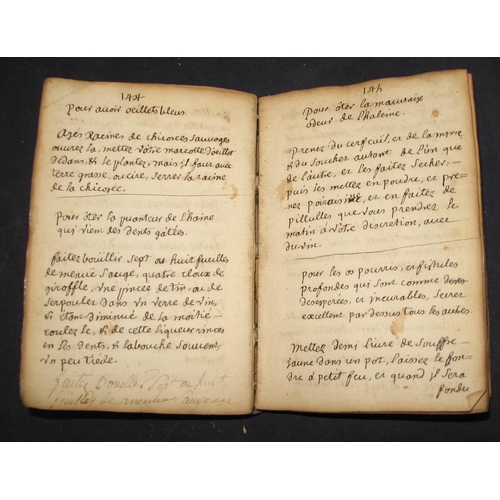 144
Pour avoir oeillets bleus
Ayes Racines de chicorées Sauvages
ouvrez la, mettez votre marcotte d'oeillet
dedans, & le plantez, mais il faut avec
terre grasse, ou cire, serrer la racine
de la chicorée.
Pour ôter la puanteur de l'haine
qui vient des dents gâtés.
faites bouillir Sept ou huit feuilles
de menüe Sauge, quatre cloux de
giroffle, vne pincée de vin, ou de
Serpoulet dans vn verre de vin,
& étant diminué de la moitié
coulez le, & de cette liqueur rincez
en les dents, & la bouche Souvent,
vn peu tiede.
faites bouillir Sept ou huit
feuilles de menüe
145
Pour ôter la mauvaise
odeur de l'haleine.
Prenez du cerfeuil, et de la myrre
& du Souchet autant de l'un que
de l'autre, et les faites Secher,
puis les mettez en poudre, et pre-
nez et en faites de
pillulles que vous prendrez le
matin à vôtre discretion, avec
du vin.
pour les os pourris, et fistules
profondes qui sont comme
desesperées, et incurables, Secret
excellent par dessus tous les autres.
Mettez demi livre de Souffre
jaune dans un pot, laissez le fon-
dre à petit feu, et quand il Sera
fondu